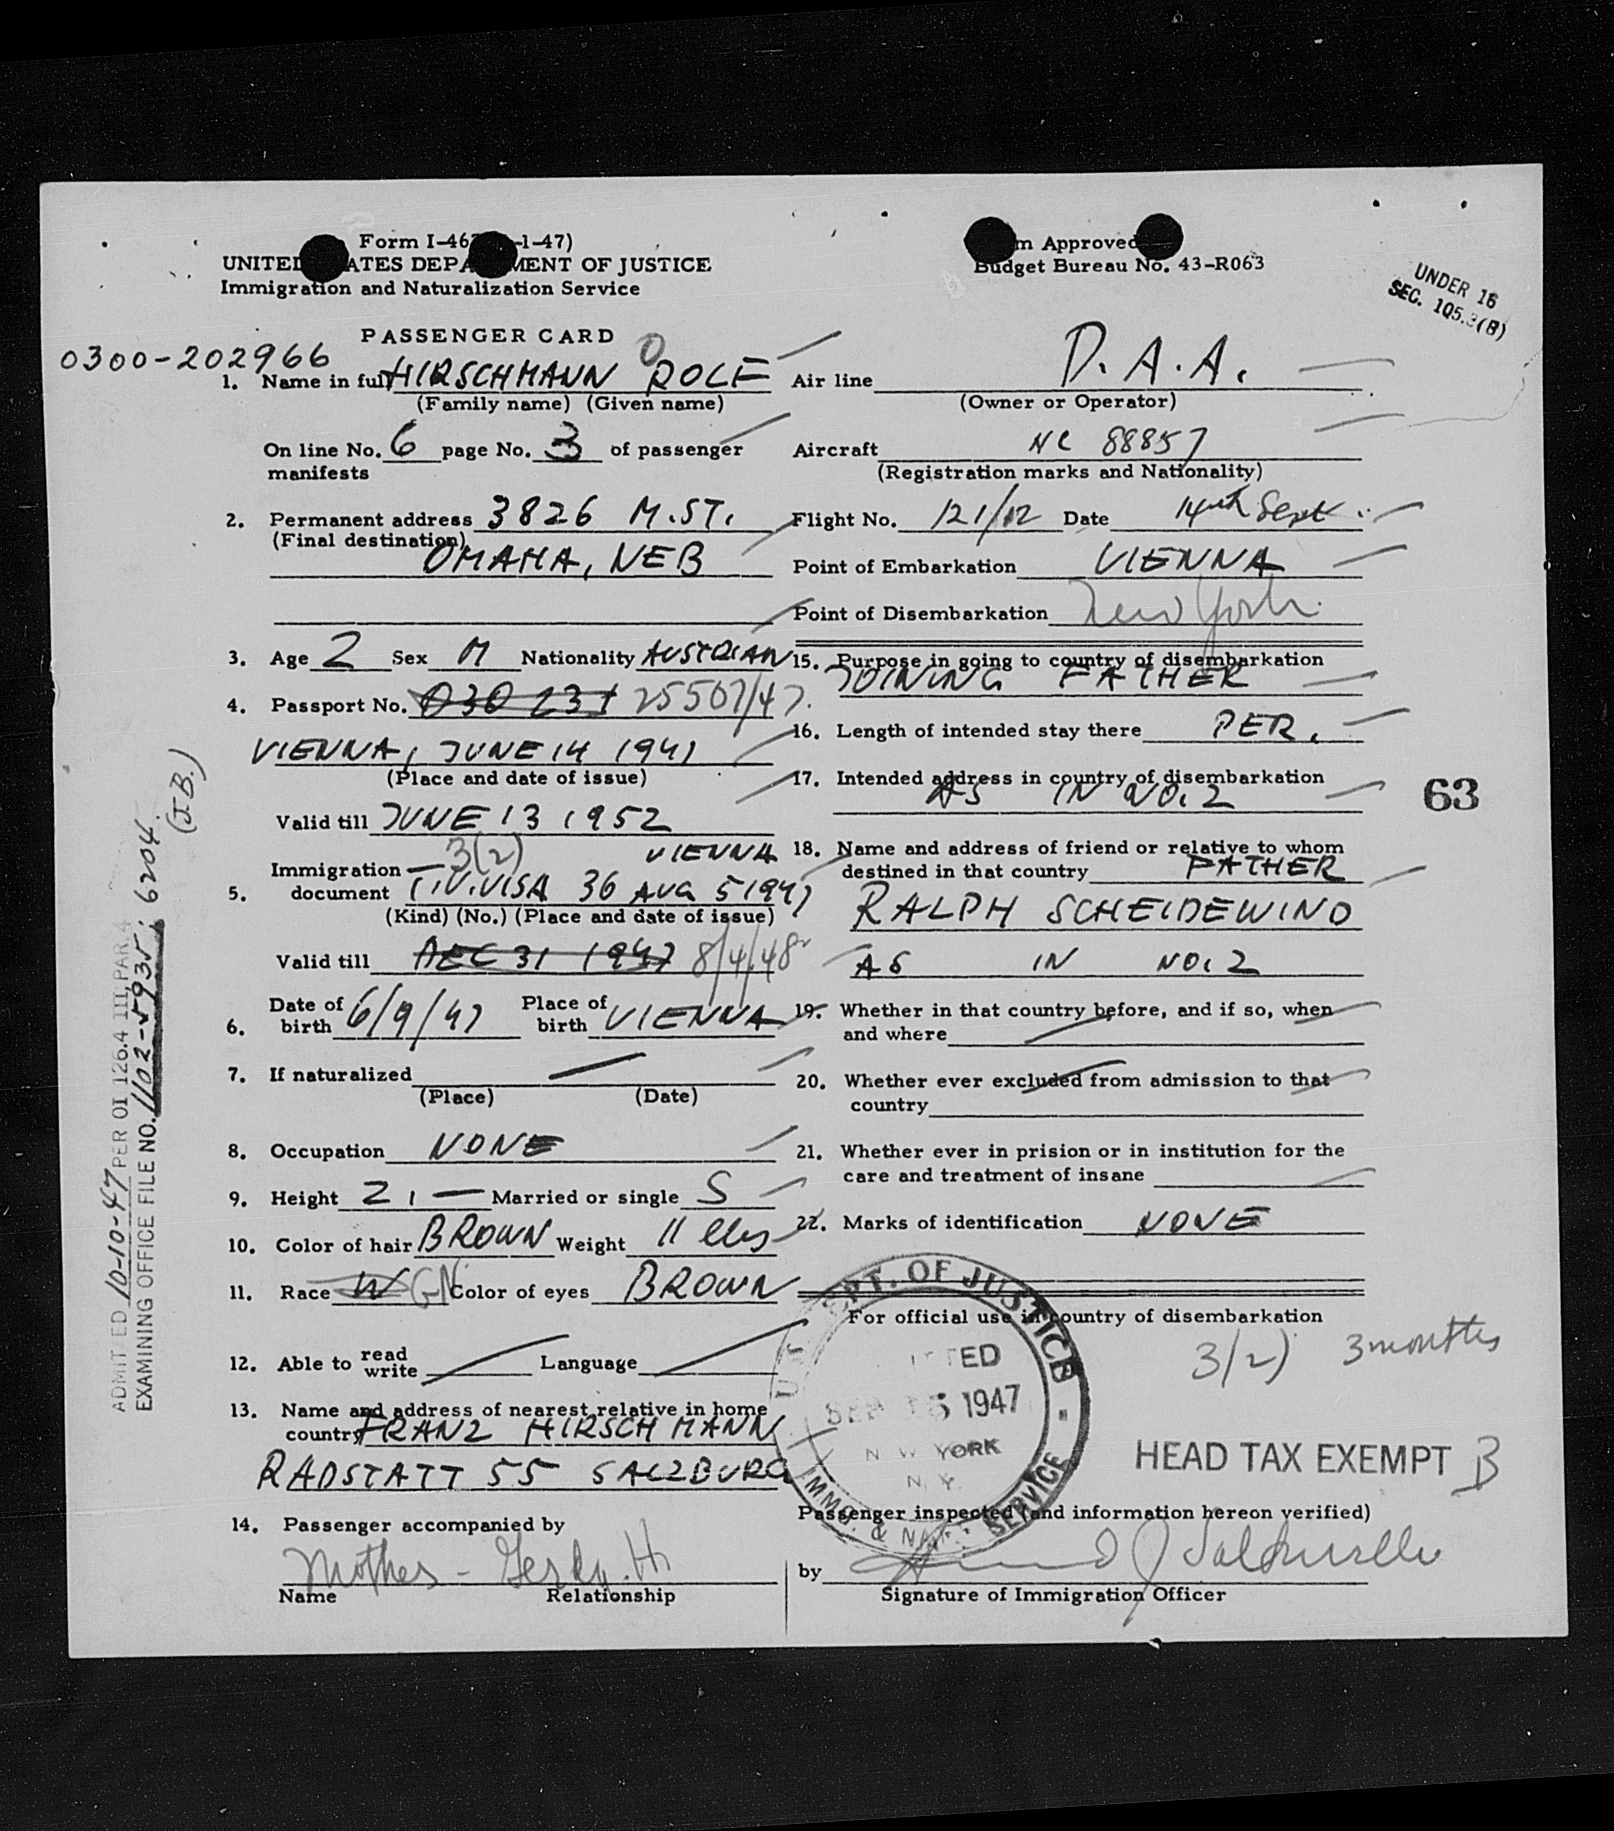 Form I-46 -1-47)
UNITED STATES DEPARTMENT OF JUSTICE
Immigration and Naturalization Service
Form Approved
Budget Bureau No. 43-R063
UNDER 16
SEC. 105.3(B)
PASSENGER CARD
0300-202966
1. Name in full HIRSCHMANN ROLF
(Family name) (Given name)
On line No. 6 page No. 3 of passenger
manifests
2. Permanent address 3826 M. ST.
(Final destination)
OMAHA, NEB
3. Age 2 Sex M Nationality AUSTRIAN
4. Passport No. 25507/47
VIENNA, JUNE 14 1947
(Place and date of issue)
Valid till JUNE 13 1952
3(2) VIENNA
5. Immigration document VISA 36 AUG 5 1947
(Kind) (No.) (Place and date of issue)
Valid till DEC 31 1947 8/4/48
6. Date of birth 6/9/47 Place of birth VIENNA
7. If naturalized
(Place) (Date)
8. Occupation NONE
9. Height 21 — Married or single S
10. Color of hair BROWN Weight 11
11. Race W Color of eyes BROWN
12. Able to read write Language
13. Name and address of nearest relative in home
country FRANZ HIRSCHMANN
RADSTATT 55 SALZBURG
14. Passenger accompanied by
Mother - Gerda. H.
Name Relationship
Air line P.A.A.
(Owner or Operator)
Aircraft NC 88857
(Registration marks and Nationality)
Flight No. 121/12 Date 14th Sept.
Point of Embarkation VIENNA
Point of Disembarkation New York
15. Purpose in going to country of disembarkation
JOINING FATHER
16. Length of intended stay there PER.
17. Intended address in country of disembarkation
AS IN NO. 2
18. Name and address of friend or relative to whom
destined in that country FATHER
RALPH SCHEIDEWIND
AS IN NO. 2
19. Whether in that country before, and if so, when
and where
20. Whether ever excluded from admission to that
country
21. Whether ever in prision or in institution for the
care and treatment of insane
22. Marks of identification NONE
For official use in country of disembarkation
3(2) 3 months
U.S. DEPT. OF JUSTICE
ADMITTED
SEP 15 1947
NEW YORK
N.Y.
IMMG. & NAT. SERVICE
HEAD TAX EXEMPT B
Passenger inspected (and information hereon verified)
by
Signature of Immigration Officer
63
ADMITTED 10-10-47 PER OI 126.4 III, PAR 4
EXAMINING OFFICE FILE NO. 1102-5935; 6204
(J.B.)